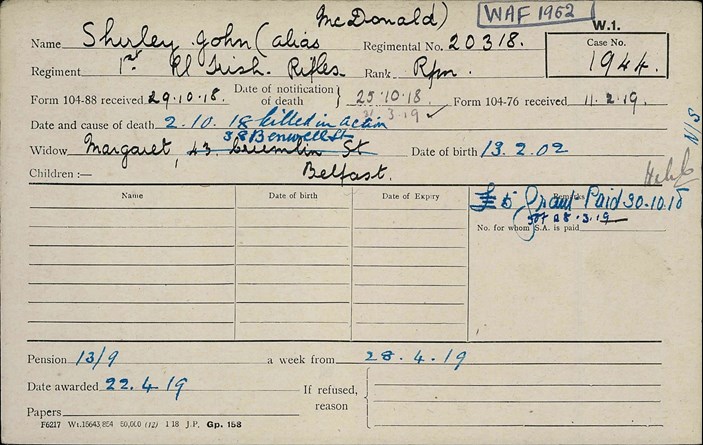 McDonald) WAF 1952 W.1.
Name Shirley John (alias Regimental No. 20318. Case No.
1944.
Regiment 1st Rl Irish. Rifles. Rank Rfm.
Form 104-88 received 29.10.18. Date of notification of death } 25.10.18. Form 104-76 received 11.2.19.
3.19 ✓
Date and cause of death 2.10.18 killed in action
38 Benwell St
Widow Margaret, 43 Crumlin St Date of birth 13.2.02
N/S
Children :— Belfast.
Name Date of birth Date of Expiry Remarks
£5 Grant Paid 30.10.18
28.3.19
No. for whom S.A. is paid
Pension 13/9 a week from 28.4.19
Date awarded 22.4.19 If refused, reason
Papers
F6217 Wt.15643,854 50,000 (12) 1 18 J.P. Gp. 158